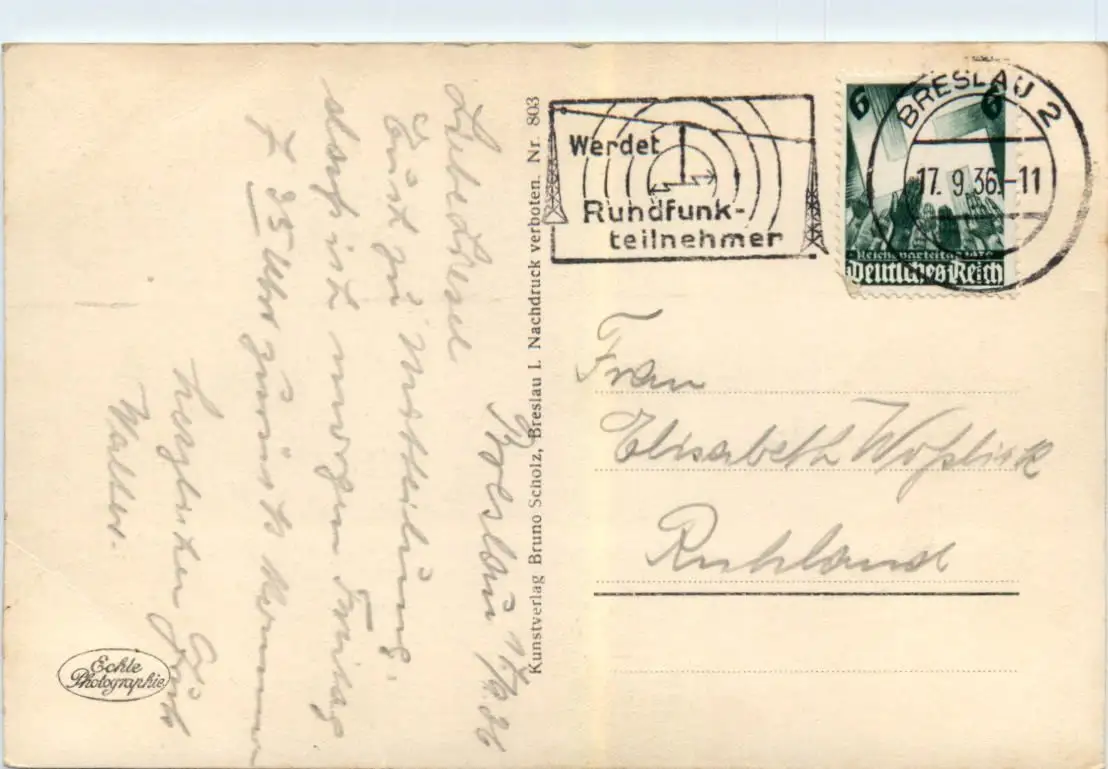 Breslau 17/9.36
Liebe Liesel
Euch zu Mitteilung,
dass ich morgen Freitag
7 35 Uhr zurück komme
herzlichen Gruß
Walter.
Kunstverlag Bruno Scholz, Breslau I. Nachdruck verboten. Nr. 803
Echte
Photographie
Werdet
Rundfunk-
teilnehmer
BRESLAU 2
17. 9. 36.-11
6 6
Reichsparteitag 1936
Deutsches Reich
Frau
Elisabeth
Ruhland